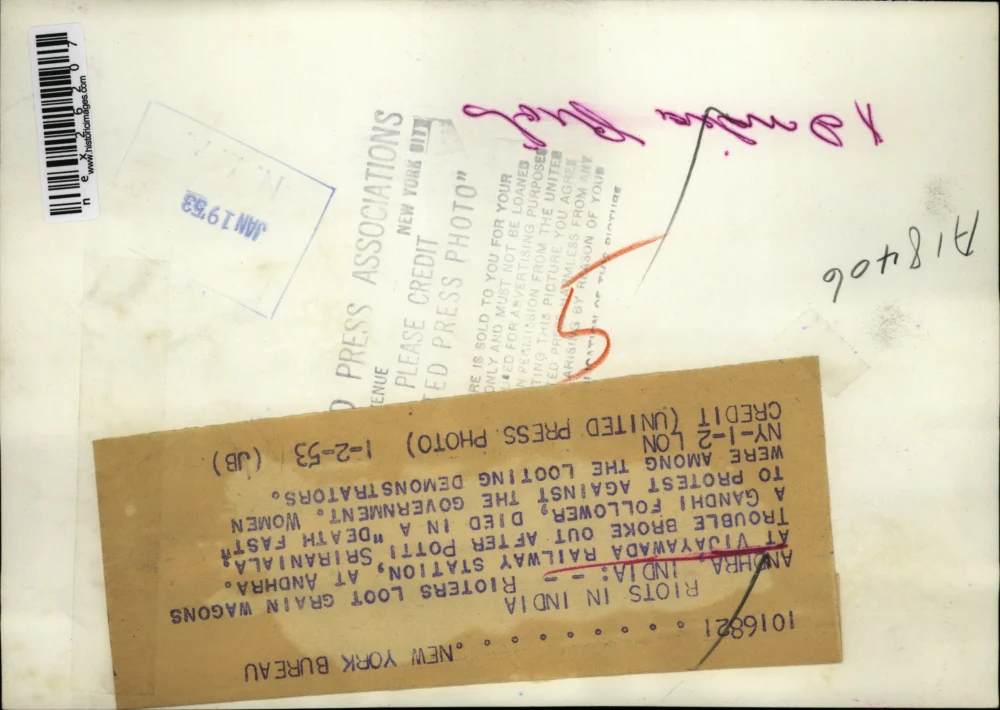 1016821 . . . . . . . . . NEW YORK BUREAU
RIOTS IN INDIA
ANDHRA, INDIA: - - RIOTERS LOOT GRAIN WAGONS
AT VIJAYAWADA RAILWAY STATION, AT ANDHRA.
TROUBLE BROKE OUT AFTER POTTI SRIRANIALA,
A GANDHI FOLLOWER, DIED IN A "DEATH FAST"
TO PROTEST AGAINST THE GOVERNMENT. WOMEN
WERE AMONG THE LOOTING DEMONSTRATORS.
NY-1-2 LON
CREDIT (UNITED PRESS PHOTO) 1-2-53 (JB)
PRESS ASSOCIATIONS
ENUE NEW YORK CITY
PLEASE CREDIT
TED PRESS PHOTO"
RE IS SOLD TO YOU FOR YOUR
ONLY AND MUST NOT BE LOANED
USED FOR ADVERTISING PURPOSES
N PERMISSION FROM THE UNITED
TING THIS PICTURE YOU AGREE
HARMLESS FROM ANY
ARISING BY REASON OF YOUR
OF THIS PICTURE
JAN 19 '53
5
A18406
nex26207
www.historicimages.com